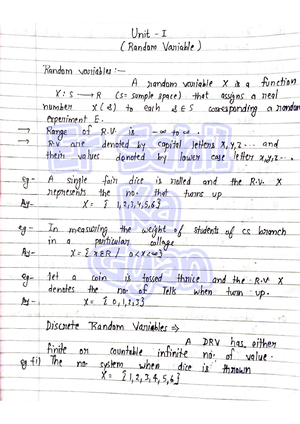 Unit - I
( Random Variable )
Random variables :-
A random variable X is a function
X : S → R (S = sample space) that assigns a real
number X(s) to each s ∈ S corresponding a random
experiment E.
→ Range of R.V. is -∞ to ∞.
→ R.V are denoted by capital letters X, Y, Z... and
their values denoted by lower case letter x, y, z...
eg- A single fair dice is rolled and the R.V. X
represents the no. that turns up
Ay- X = { 1, 2, 3, 4, 5, 6 }
eg- In measuring the weight of students of CS branch
in a particular collage
Ay- X = { x ∈ R / 0 < x < ∞ }
eg- let a coin is tossed thrice and the R.V X
denotes the no. of Tails when turn up.
Ay- X = { 0, 1, 2, 3 }
Discrete Random Variables ⇒
A DRV has either
finite or countable infinite no. of value.
eg (i) The no system when dice is thrown
X = { 1, 2, 3, 4, 5, 6 }